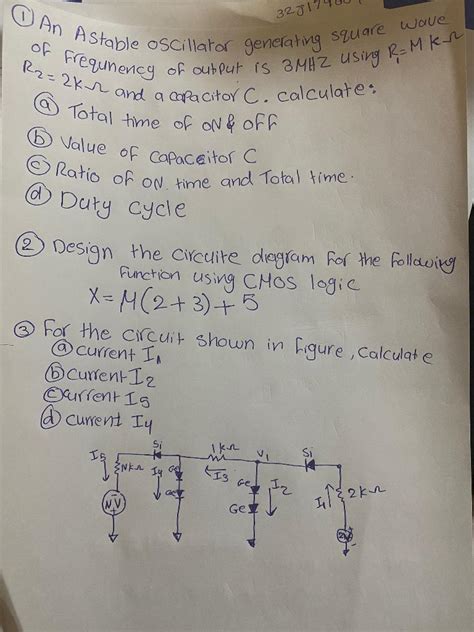 ① An Astable oscillator generating square wave
of Frequnency of output is 3MHZ using R₁=MkΩ
R₂=2kΩ and a capacitor C. calculate:
ⓐ Total time of ON & OFF
ⓑ Value of capaceitor C
ⓒ Ratio of ON time and Total time.
ⓓ Duty cycle
② Design the circuite diagram for the following
function using CMOS logic
X=M(2+3)+5
③ For the circuit shown in figure, calculate
ⓐ current I₁
ⓑ current I₂
ⓒ current I5
ⓓ current I4
Si
1kΩ
V₁
Si
I5
NkΩ
I4
Ge
I3
Ge
I2
I1
2kΩ
NV
Ge
Ge